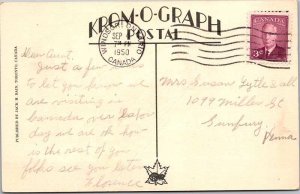 KROM-O-GRAPH
POSTAL
WINDSOR
SEP
7 PM
1950
CANADA
CANADA
3
PUBLISHED BY JACK H. BAIN, TORONTO, CANADA
Dear Aunt.
Just a few
to let you know we
are visiting in
Canada over labor
day we are ok how
is the rest of you
folks see you later
Florence
Mrs Susan Lytle & all
1099 Miller St
Sunbury
Penna